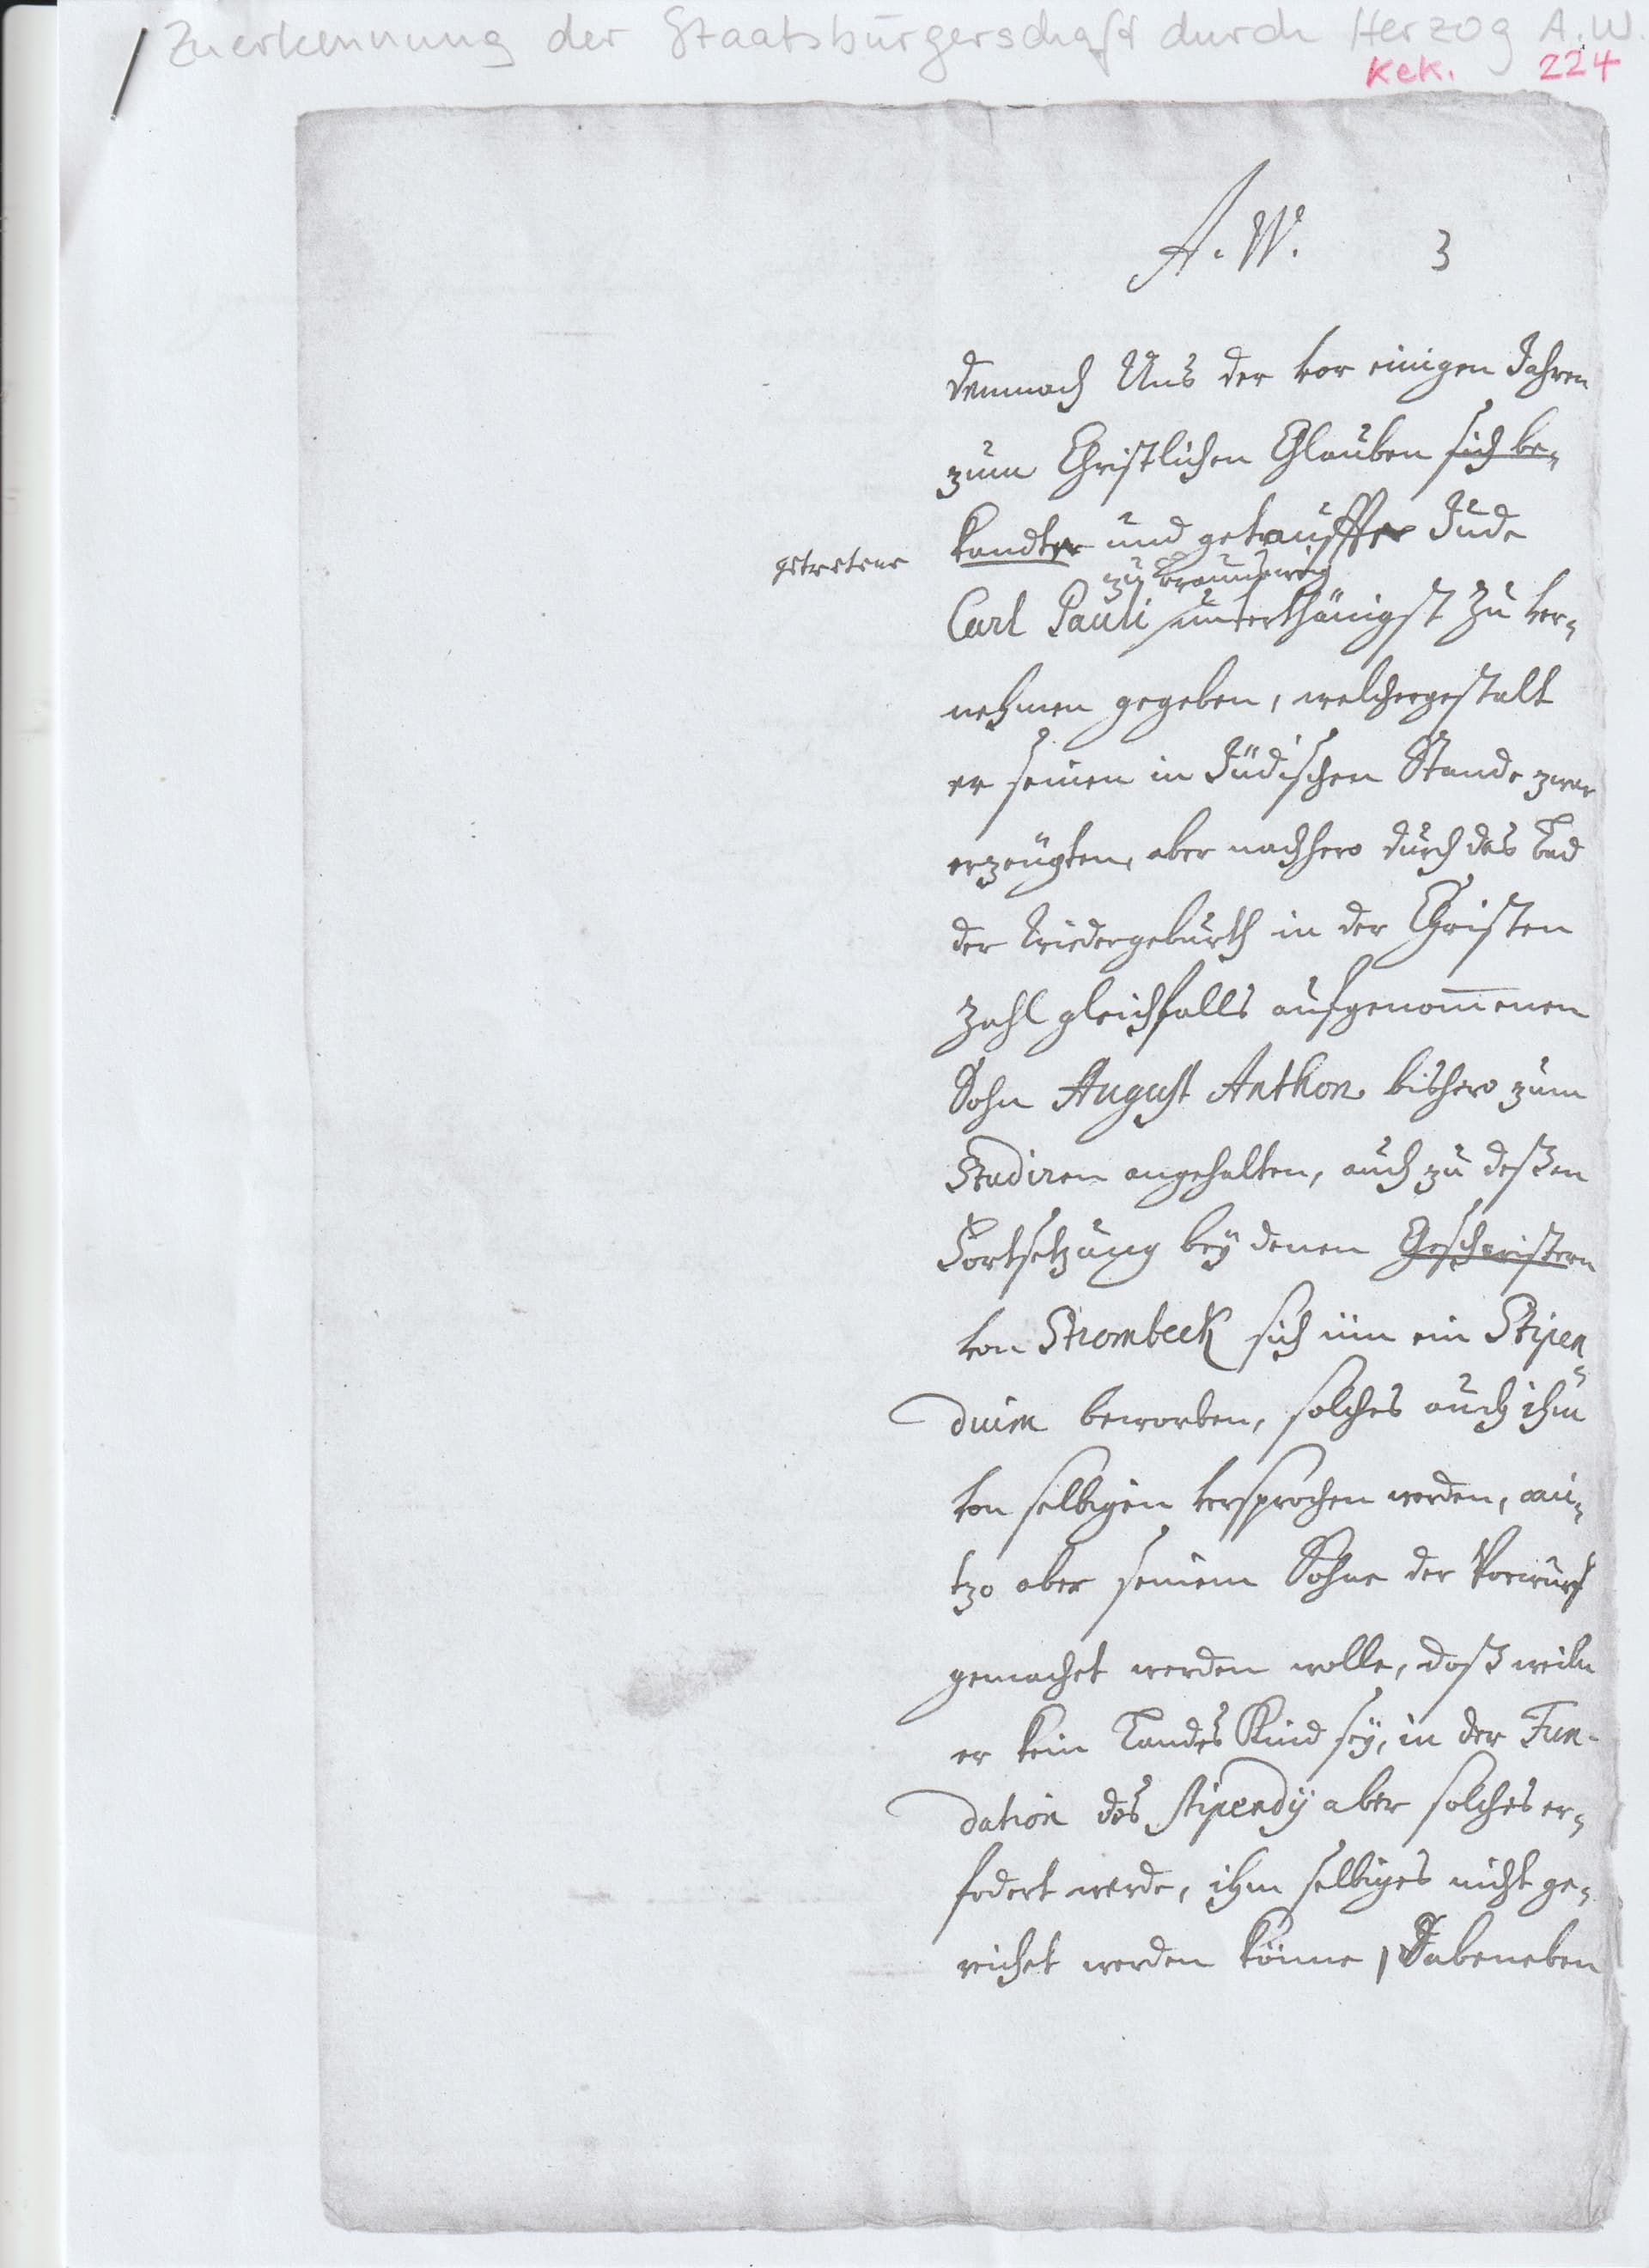 Zuerkennung der Staatsbürgerschaft durch Herzog A.W.
Kek. 224
A. W. 3
Demnach Uns der vor einigen Jahren
zum Christlichen Glauben sich be-
kandter und getauffter Jude
getretene
zu Braunschweig
Carl Pauli unterthänigst zu ver-
nehmen gegeben, welchergestalt
er seinen in Jüdischen Stande zwar
erzeugten, aber nachhero durch das Bad
der Wiedergeburth in der Christen
Zahl gleichfalls aufgenommenen
Sohn August Anthon bishero zum
Studiren angehalten, auch zu deßen
Fortsetzung bey denen Geschwistern
von Strombeck sich üm ein Stipen-
dium beworben, solches auch ihm
von selbigen versprochen worden, an-
tzo aber seinem Sohne der Vorwurf
gemachet werden wolle, daß weiln
er kein Landes Kind sey, in der Fun-
dation des stipendy aber solches er-
fodert werde, ihm selbiges nicht ge-
reichet werden könne, Dabeneben